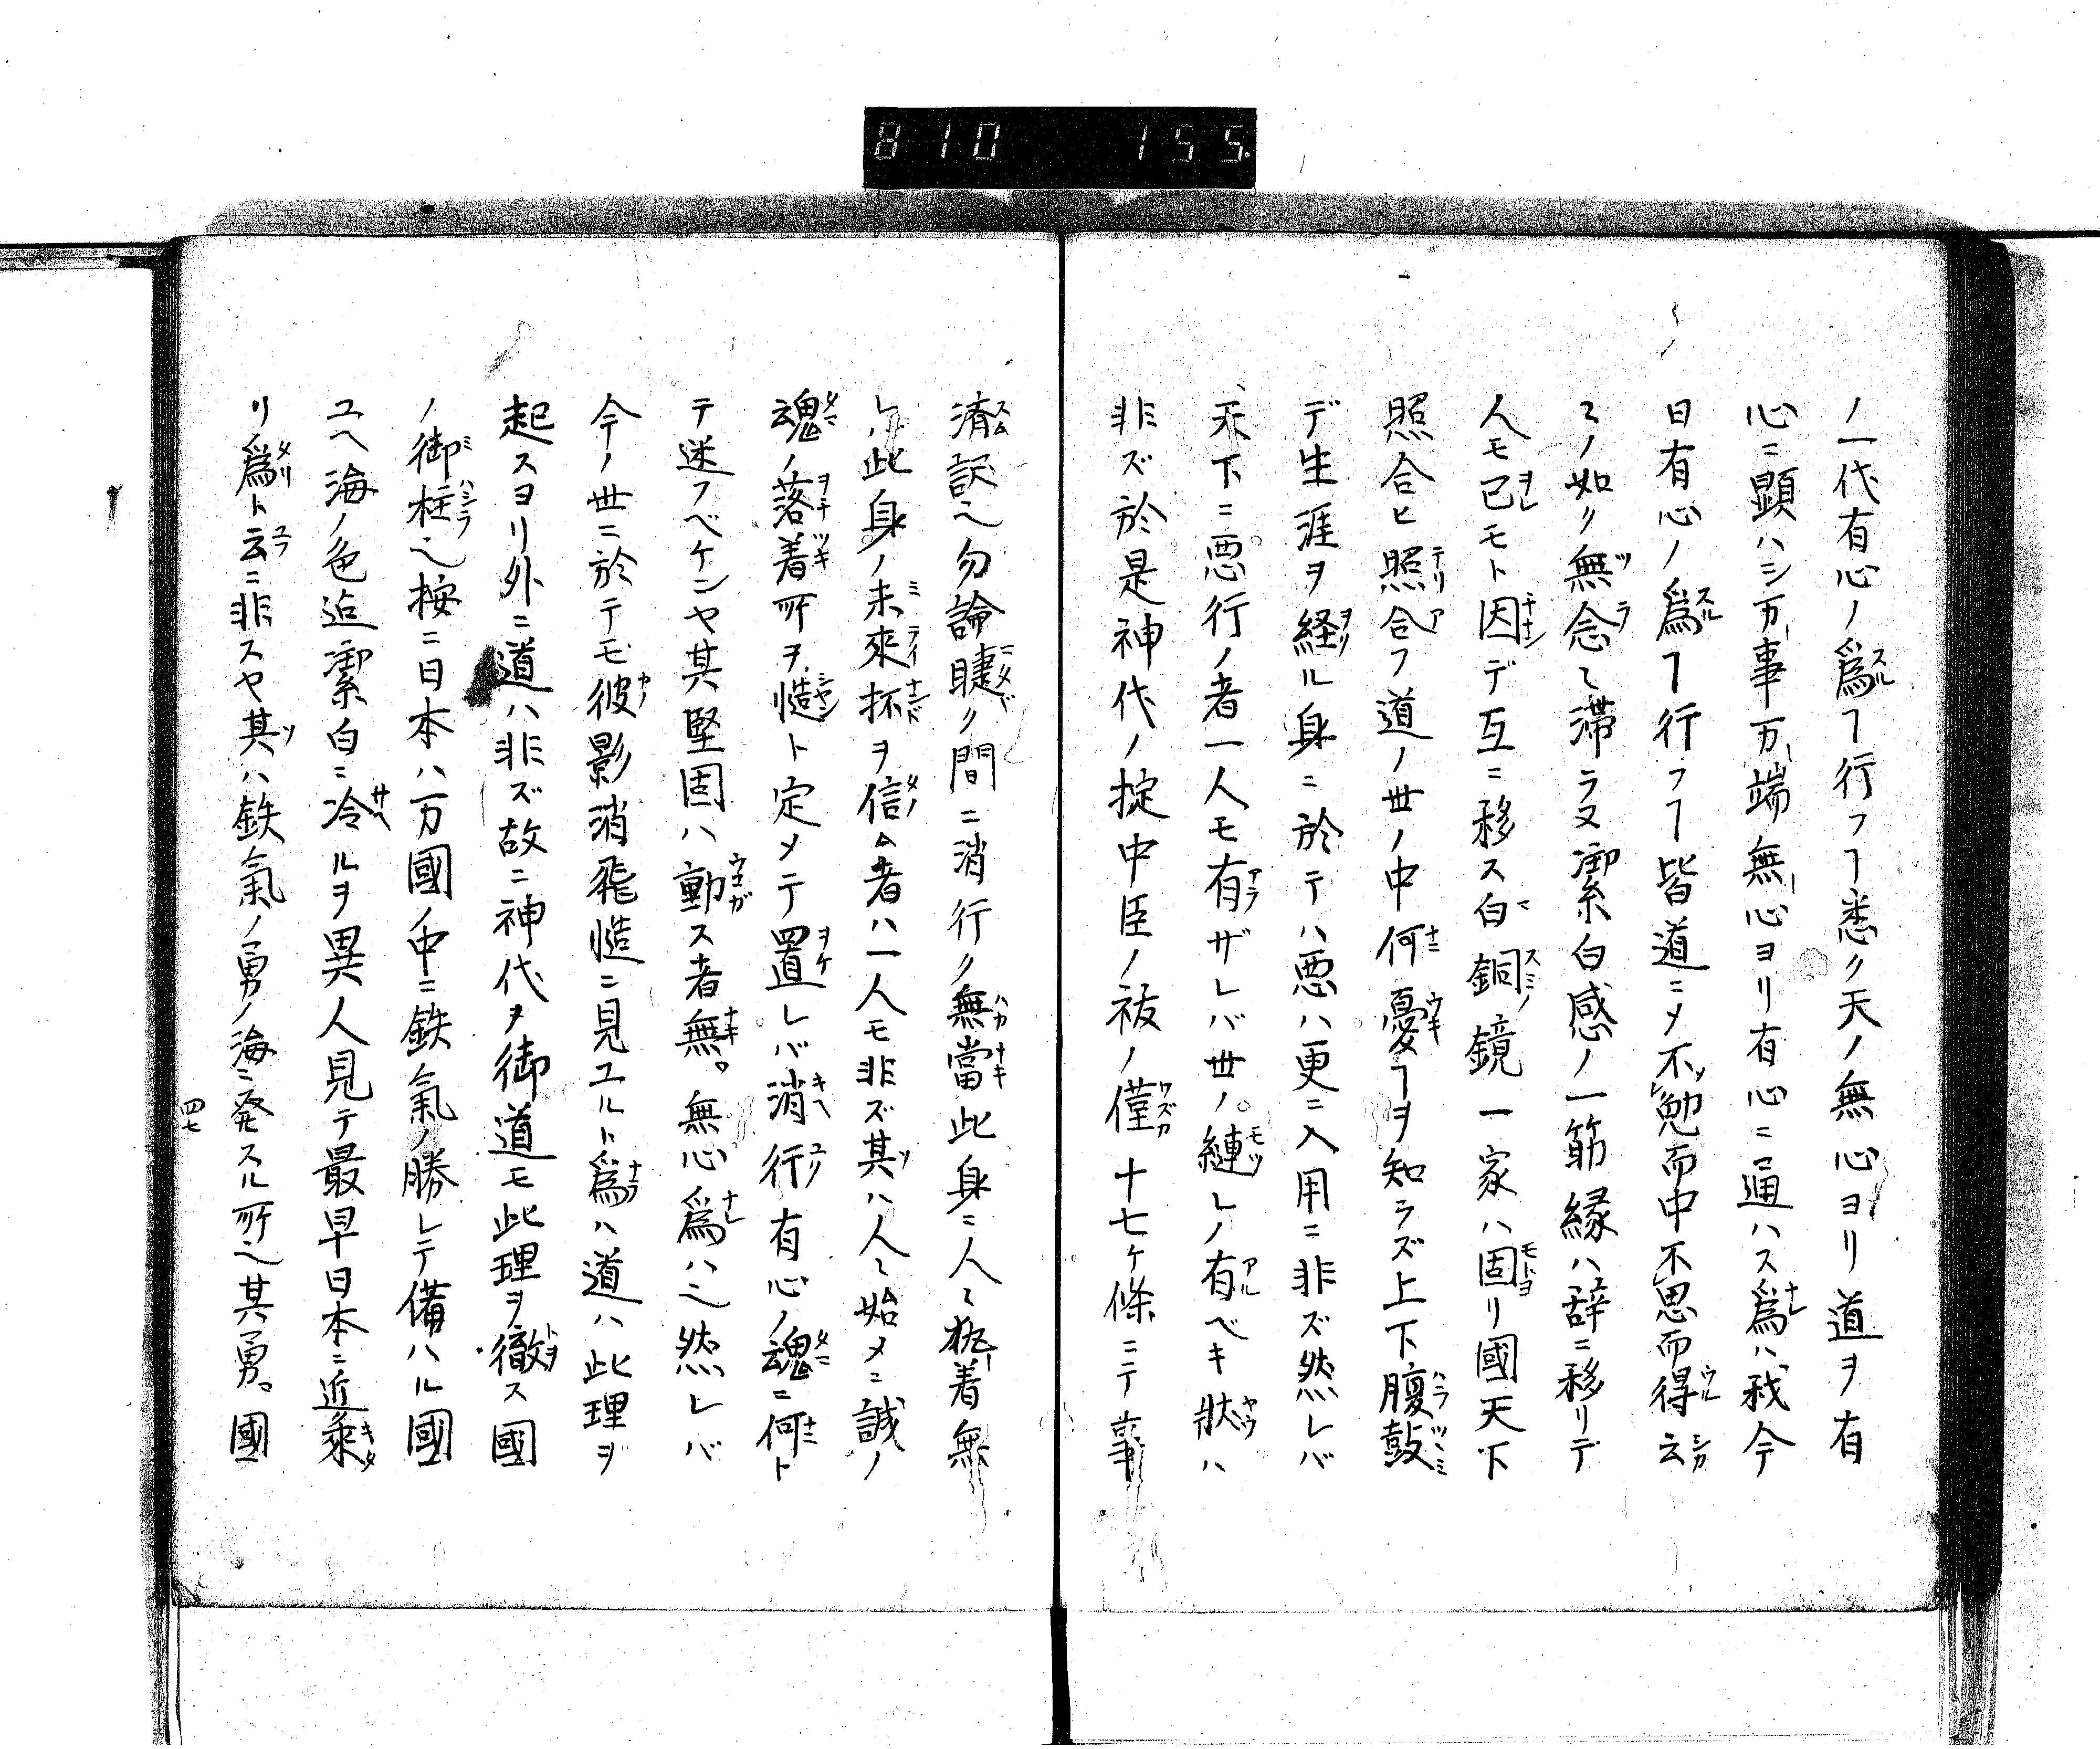 810 155.
ノ一代有心ノ爲ヿ行フヿ悉ク天ノ無心ヨリ道ヲ有
心ニ顕ハシ万事万端無心ヨリ有心ニ通ハス爲ハ我今
日有心ノ爲ヿ行フヿ皆道ニメ不勉而中不思而得云
〻ノ如ク無念〻滞ラヌ潔白感ノ一筋縁ハ辞ニ移リデ
人モ己モト因デ互ニ移ス白銅鏡一家ハ固リ國天下
照合ヒ照合フ道ノ世ノ中何憂ヿヲ知ラズ上下腹鼓
デ生涯ヲ経ル身ニ於テハ悪ハ更ニ入用ニ非ズ然レバ
天下ニ悪行ノ者一人モ有ザレバ世ノ縺レノ有ベキ状ハ
非ズ於是神代ノ掟中臣ノ祓ノ僅十七ケ條ニテ事
済訳ヘ勿論瞜ク間ニ消行ク無當此身ニ人〻執着無
レバ此身ノ未來抔ヲ信ム者ハ一人モ非ズ其ハ人〻始メニ誠ノ
魂ノ落着所ヲ慥ト定メテ置レバ消行有心ノ魂ニ何ト
テ迷フベケンヤ其堅固ハ動ス者無。無心爲ハ之然レバ
今ノ世ニ於テモ彼影消飛慥ニ見ユルト爲ハ道ハ此理ヲ
起スヨリ外ニ道ハ非ズ故ニ神代ヲ御道モ此理ヲ徹ス國
ノ御柱ヘ按ニ日本ハ万國ノ中ニ鉄氣ノ勝レテ備ハル國
ユヘ海ノ色迠潔白ニ冷ルヲ異人見テ最早日本ニ近乘
リ爲ト云ニ非スヤ其ハ鉄氣ノ勇ノ海ニ発スル所ヘ其勇。國
四七